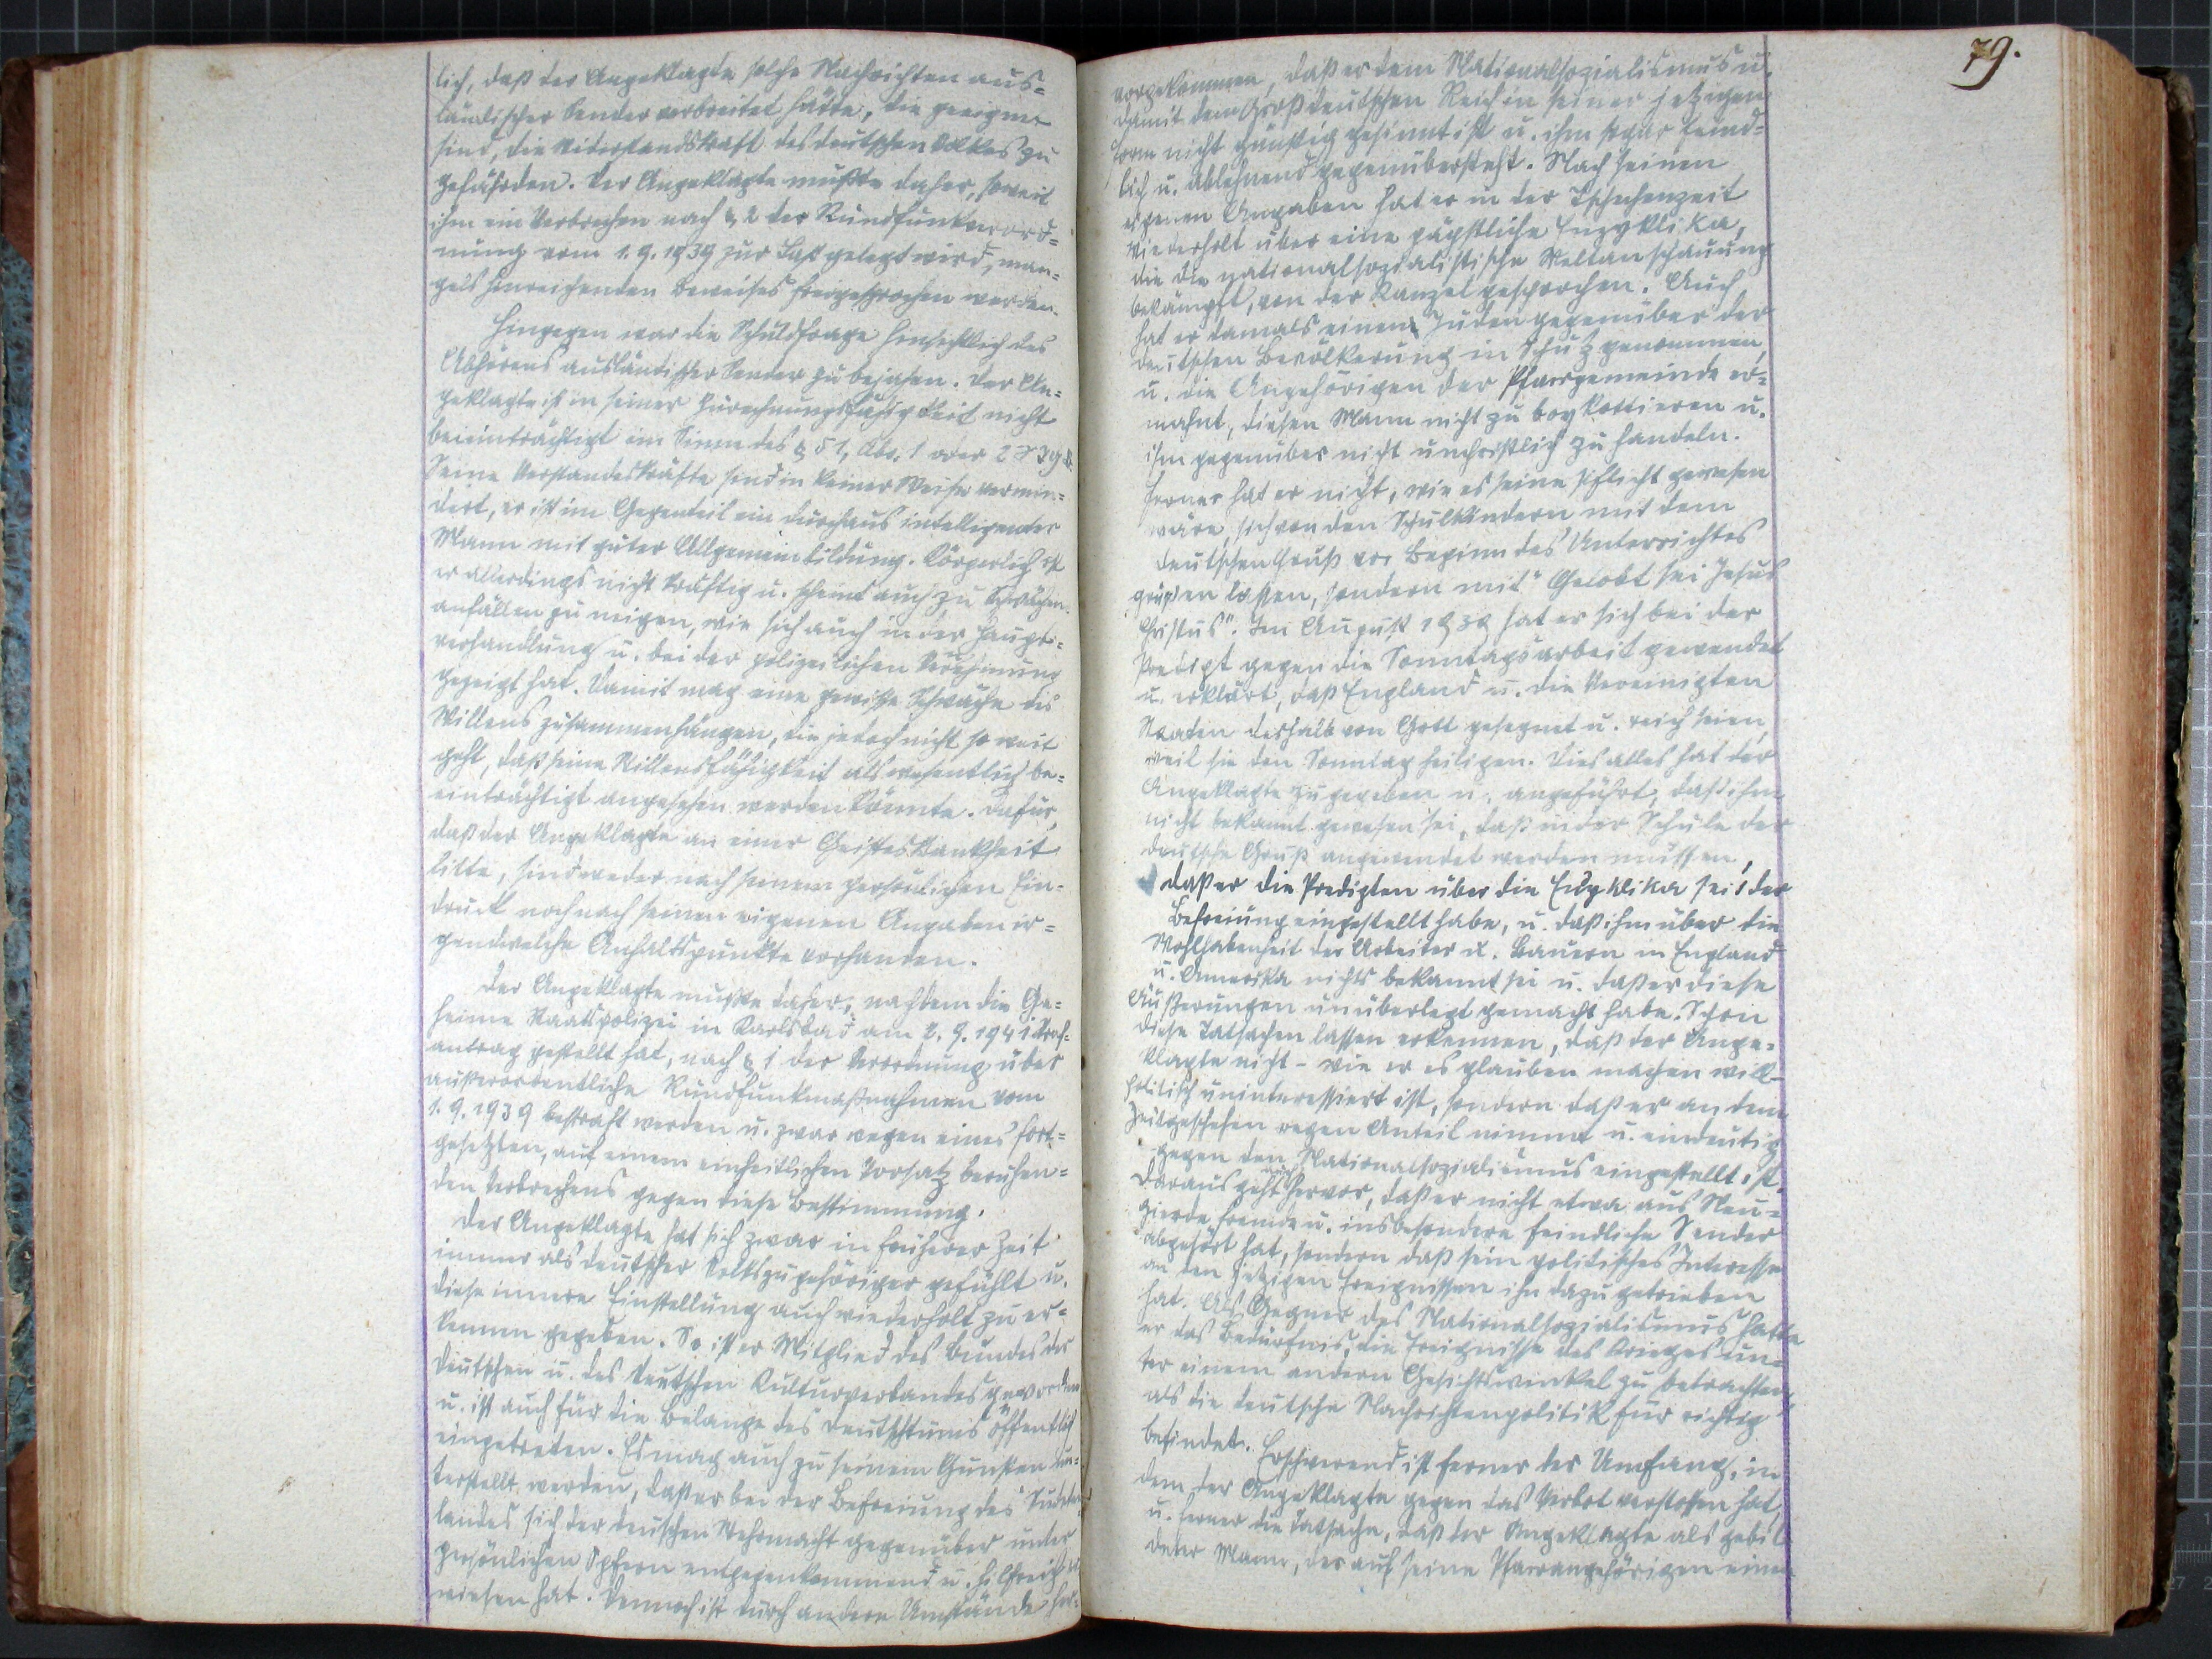 lich, daß der Angeklagte solche Nachrichten aus=
ländischer Sender verbreitet hätte, die geeignet
sind, die Widerstandskraft des deutschen Volkes zu
gefährden. Der Angeklagte mußte daher, soweit
ihm ein Verbrechen nach § 2 der Rundfunkverord=
nung vom 1.9.1939 zur Last gelegt wird, man=
gels hinreichenden Beweises freigesprochen werden.
Hingegen war die Schuldfrage hinsichtlich des
Abhörens ausländischer Sender zu bejahen. Der An=
geklagte ist in seiner Zurechnungsfähigkeit nicht
beeinträchtigt im Sinne des § 51, Abs. 1 oder 2
Seine Verstandeskräfte sind in keiner Weise vermin=
dert, er ist im Gegenteil ein durchaus intelligenter
Mann mit guter Allgemeinbildung. Körperlich ist
er allerdings nicht kräftig u. scheint auch zu Schwäche=
anfällen zu neigen, wie sich auch in der Haupt=
verhandlung u. bei der polizeilichen Vernehmung
gezeigt hat. Damit mag eine gewisse Schwäche des
Willens zusammenhängen, die jedoch nicht so weit
geht, daß seine Willensfähigkeit als wesentlich be=
einträchtigt angesehen werden könnte. Dafür,
daß der Angeklagte an einer Geisteskrankheit
litte, sind weder nach seinem persönlichen Ein=
druck noch nach seinen eigenen Angaben ir=
gendwelche Anhaltspunkte vorhanden.
Der Angeklagte mußte daher, nachdem die Ge=
heime Staatspolizei in Karlsbad am 2.9.1941 Straf=
antrag gestellt hat, nach § 1 der Verordnung über
außerordentliche Rundfunkmaßnahmen vom
1.9.1939 bestraft werden u. zwar wegen eines fort=
gesetzten, auf einem einheitlichen Vorsatz beruhen=
den Verbrechens gegen diese Bestimmung.
Der Angeklagte hat sich zwar in früherer Zeit
immer als deutscher Volkszugehöriger gefühlt u.
diese innere Einstellung auch wiederholt zu er=
kennen gegeben. So ist er Mitglied des Bundes der
Deutschen u. des Deutschen Kulturverbandes geworden
u. ist auch für die Belange des Deutschtums öffentlich
eingetreten. Es mag auch zu seinem Gunsten un=
terstellt werden, daß er bei der Befreiung des Sudeten=
landes sich der deutschen Wehrmacht gegenüber unter
persönlichen Opfern entgegenkommend u. hilfreich er=
wiesen hat. Dennoch ist durch andere Umstände her=
79.
vorgekommen, daß er dem Nationalsozialismus u.
damit dem Großdeutschen Reich in seiner jetzigen
Form nicht günstig gesinnt ist u. ihm sogar feind=
lich u. ablehnend gegenübersteht. Nach seinen
eigenen Angaben hat er in der Tschechenzeit
wiederholt über eine päpstliche Enzyklika,
die die nationalsozialistische Weltanschauung
bekämpft, von der Kanzel gesprochen. Auch
hat er damals einen Juden gegenüber der
deutschen Bevölkerung in Schutz genommen,
u. die Angehörigen der Pfarrgemeinde er=
mahnt, diesen Mann nicht zu boykottieren u.
ihm gegenüber nicht unchristlich zu handeln.
Ferner hat er nicht, wie es seine Pflicht gewesen
wäre, sich von den Schulkindern mit dem
deutschen Gruß vor Beginn des Unterrichtes
grüßen lassen, sondern mit "Gelobt sei Jesus
Christus". Im August 1939 hat er sich bei der
Predigt gegen die Sonntagsarbeit gewendet
u. erklärt, daß England u. die Vereinigten
Staaten deshalb von Gott gesegnet u. reich seien,
weil sie den Sonntag heiligen. Dies alles hat der
Angeklagte zugegeben u. angeführt, daß ihm
nicht bekannt gewesen sei, daß in der Schule der
deutsche Gruß angewendet werden müssen,
daß er die Predigten über die Enzyklika seit der
Befreiung eingestellt habe, u. daß ihm über die
Wohlhabenheit der Arbeiter u. Bauern in England
u. Amerika nichts bekannt sei u. daß er diese
Äußerungen unüberlegt gemacht habe. Schon
diese Tatsachen lassen erkennen, daß der Ange=
klagte nicht - wie er es glauben machen will -
politisch uninteressiert ist, sondern daß er an dem
Zeitgeschehen regen Anteil nimmt u. eindeutig
gegen den Nationalsozialismus eingestellt ist.
Daraus geht auch hervor, daß er nicht etwa aus Neu=
gierde fremde u. insbesondere feindliche Sender
abgehört hat, sondern daß sein politisches Interesse
an den jetzigen Ereignissen ihn dazu getrieben
hat. Als Gegner des Nationalsozialismus hatte
er das Bedürfnis, die Ereignisse des Krieges un=
ter einem andern Gesichtswinkel zu betrachten,
als die deutsche Nachrichtenpolitik für richtig
befindet. Erschwerend ist ferner der Umfang, in
dem der Angeklagte gegen das Verbot verstoßen hat,
u. ferner die Tatsache, daß der Angeklagte als gebil=
deter Mann, der auf seine Pfarrangehörigen einen